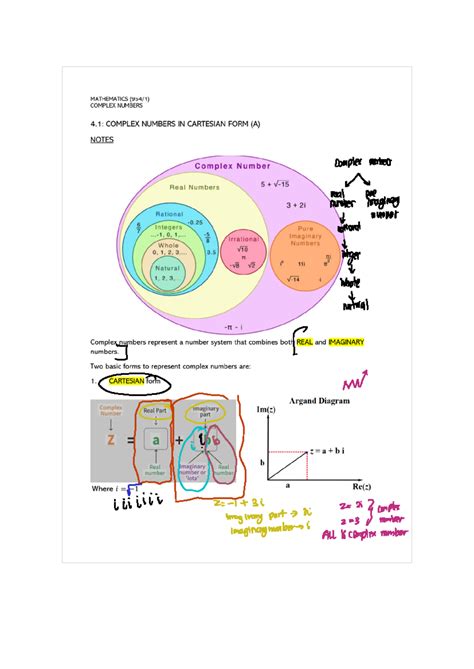 MATHEMATICS (954/1)
COMPLEX NUMBERS
4.1: COMPLEX NUMBERS IN CARTESIAN FORM (A)
NOTES
Complex Number
Real Numbers
5 + √-15
3 + 2i
Rational
-0.25
Integers
...-1, 0, 1,...
Whole
0, 1, 2, 3...
Natural
1, 2, 3...
3.5
Irrational
√10
π
-√8 √2
Pure
Imaginary
Numbers
11i
-√14
-π - i
complex numbers
real
number
pure
imaginary
number
whole
natural
Complex numbers represent a number system that combines both REAL and IMAGINARY
numbers.
Two basic forms to represent complex numbers are:
1. CARTESIAN form
Complex
Number
Real Part
Imaginary
part
z = a +
Real
number
Imaginary
number or
'iota'
Real
number
Where i = √-1
Argand Diagram
Im(z)
z = a + b i
b
a
Re(z)
z = -1 + 3i
imaginary part → 3i
imaginary number → i
z = 2i
z = 3
complex
number
All is complex number